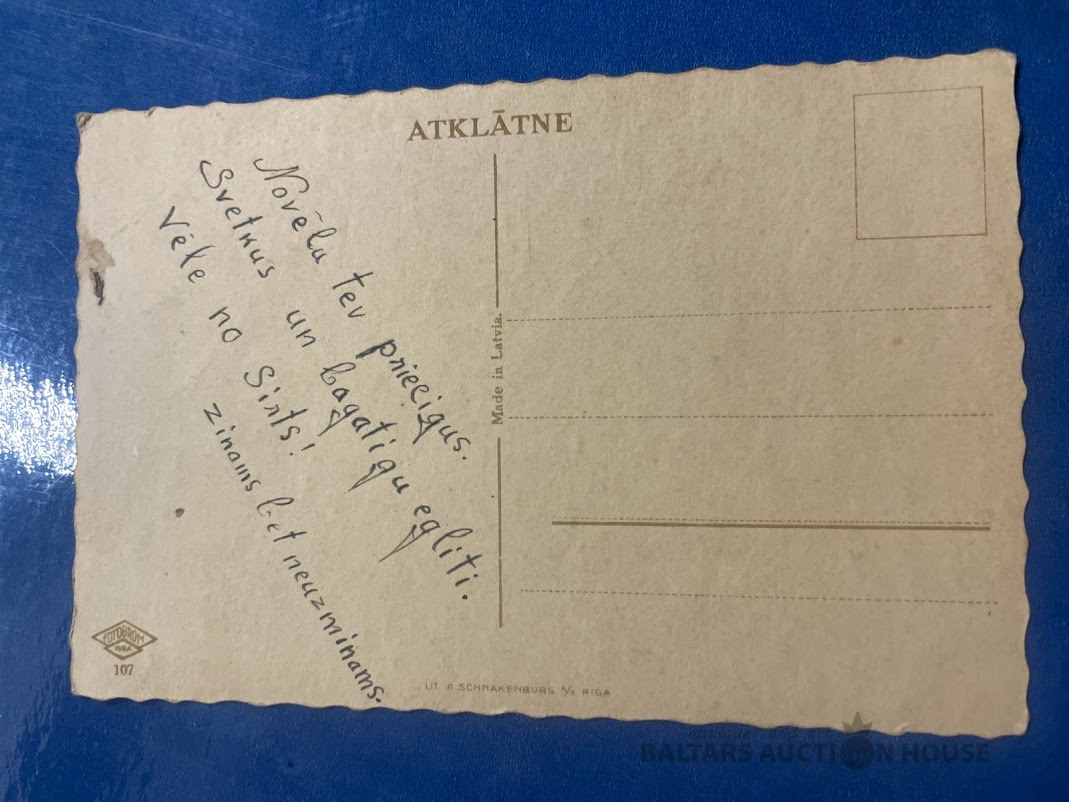 ATKLĀTNE
Novēlu tev priecigus.
Svetkus un bagatigu egliti.
Vēle no Sirts!
zinams bet neuzminams.
Made in Latvia.
FOTOBROM
RIGA
107
LIT. A. SCHNAKENBURG A/S RIGA
antiques and art
BALTARS AUCTION HOUSE